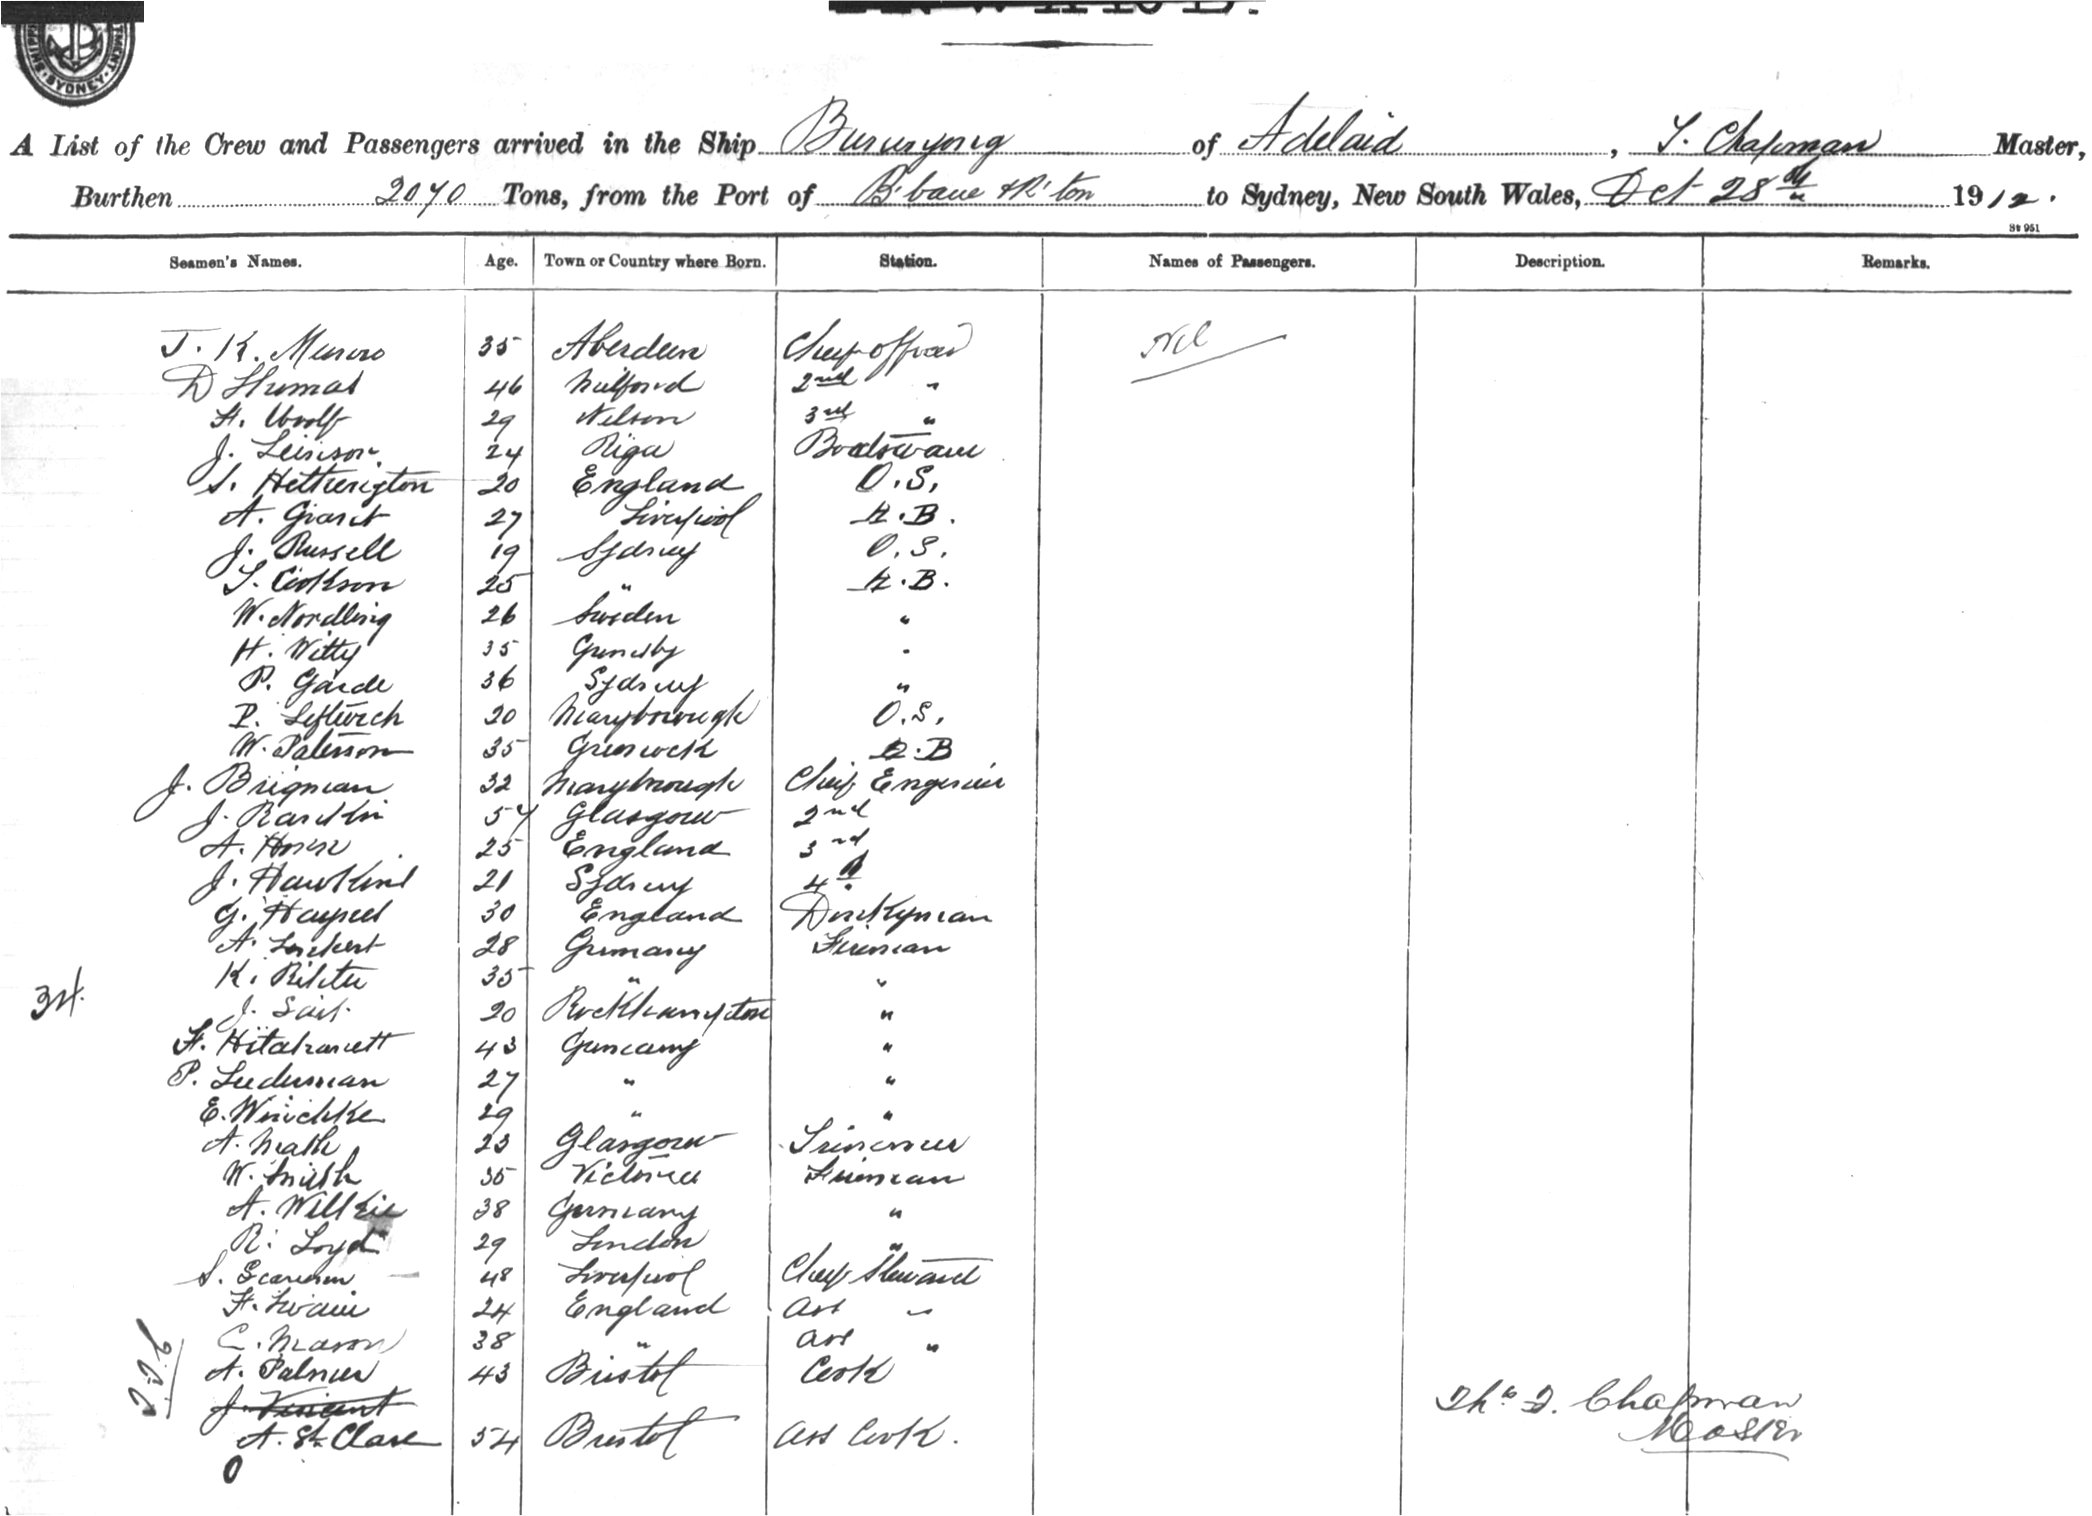 SYDNEY
A List of the Crew and Passengers arrived in the Ship Burwyong of Adelaid, T. Chapman Master,
Burthen 2070 Tons, from the Port of B'bane & R'ton to Sydney, New South Wales, Oct 28th 1912.
St 951
Seamen's Names. Age. Town or Country where Born. Station. Names of Passengers. Description. Remarks.
J. K. Munro 35 Aberdeen Chief officer Nil
D Thomas 46 Milford 2nd "
H. Woolf 29 Nelson 3rd "
J. 24 Riga Boatswain
S. Hetherington 20 England O.S.
A. Grant 27 Liverpool A.B.
J. Russell 19 Sydney O.S.
T. Cookson 25 " A.B.
W. Nordling 26 Sweden "
H. Witty 35 Grimsby "
P. Garde 36 Sydney "
P. Leftwich 20 Maryborough O.S.
W. Paterson 35 Greenock A.B
J. Brigman 32 Maryborough Chief Engineer
J. Rankin 54 Glasgow 2nd
A. 25 England 3rd
J. Hawkins 21 Sydney 4th
G. Haynes 30 England Donkyman
A. 28 Germany Fireman
K. 35 " "
J. 20 Rockhampton "
34.
F. 43 Germany "
P. Luderman 27 " "
E. Winichke 29 " "
A. 23 Glasgow Trimmer
W. Smith 35 Victoria Fireman
A. Wilkie 38 Germany "
R. Loyd 29 London "
S. 48 Liverpool Chief Steward
F. Swain 24 England ass "
C. Mason 38 " ass "
A. Palmer 43 Bristol Cook
J. Vincent
Thos. F. Chapman
A. St. Clare 54 Bristol ass Cook.
Master
0